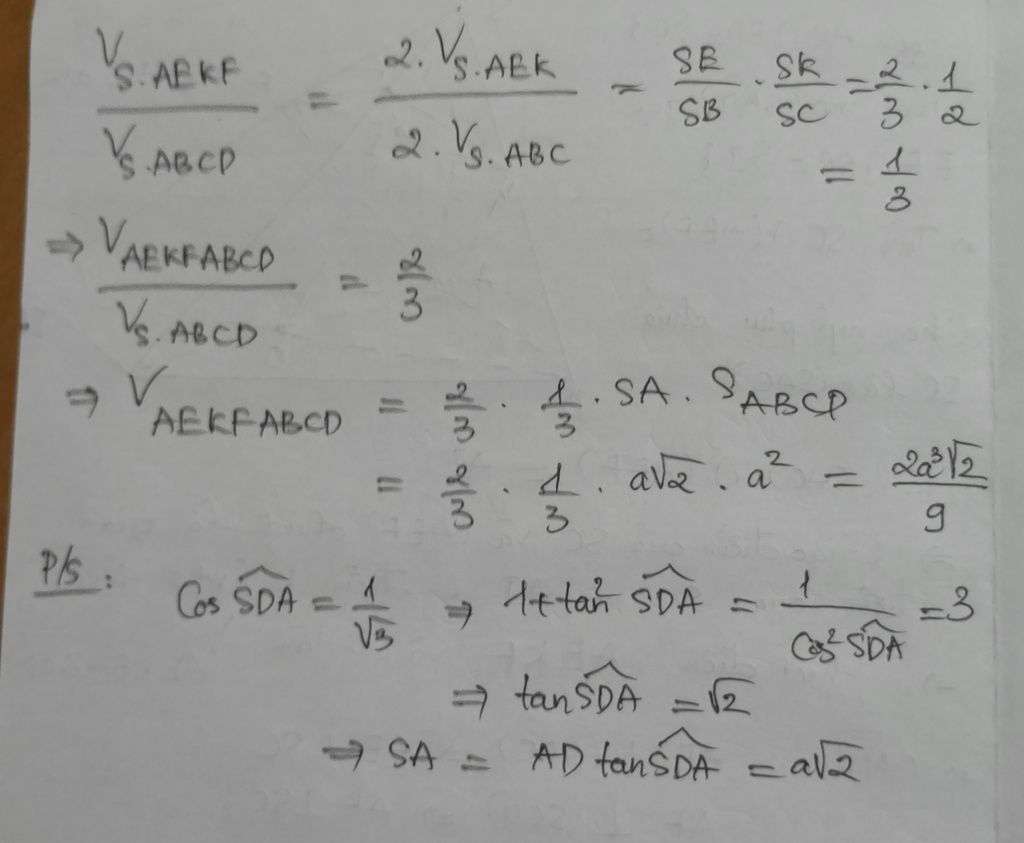 V_{S.AEKF} / V_{S.ABCD} = 2.V_{S.AEK} / 2.V_{S.ABC} = SE/SB . SK/SC = 2/3 . 1/2
= 1/3
⇒ V_{AEKFABCD} / V_{S.ABCD} = 2/3
⇒ V_{AEKFABCD} = 2/3 . 1/3 . SA . S_{ABCD}
= 2/3 . 1/3 . a√2 . a² = 2a³√2 / 9
P/S : Cos \widehat{SDA} = 1/√3 ⇒ 1+tan² \widehat{SDA} = 1 / Cos² \widehat{SDA} = 3
⇒ tan \widehat{SDA} = √2
⇒ SA = AD tan \widehat{SDA} = a√2